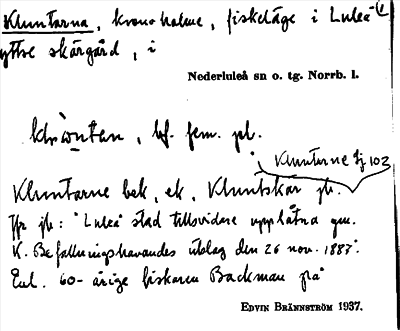 Kluntarna, kronoholme, fiskeläge i Luleå
yttre skärgård, i
Nederluleå sn o. tg. Norrb. l.
best. fem. pl.
Kluntarne Sj 102
Kluntarne bek, ek, Kluntskär jb.
Jfr jb: "Luleå stad tillsvidare upplåtna gm.
K. Befallningshavandes utslag den 26 nov. 1887".
Enl. 60-årige fiskaren Backman på
EDVIN BRÄNNSTRÖM 1937.